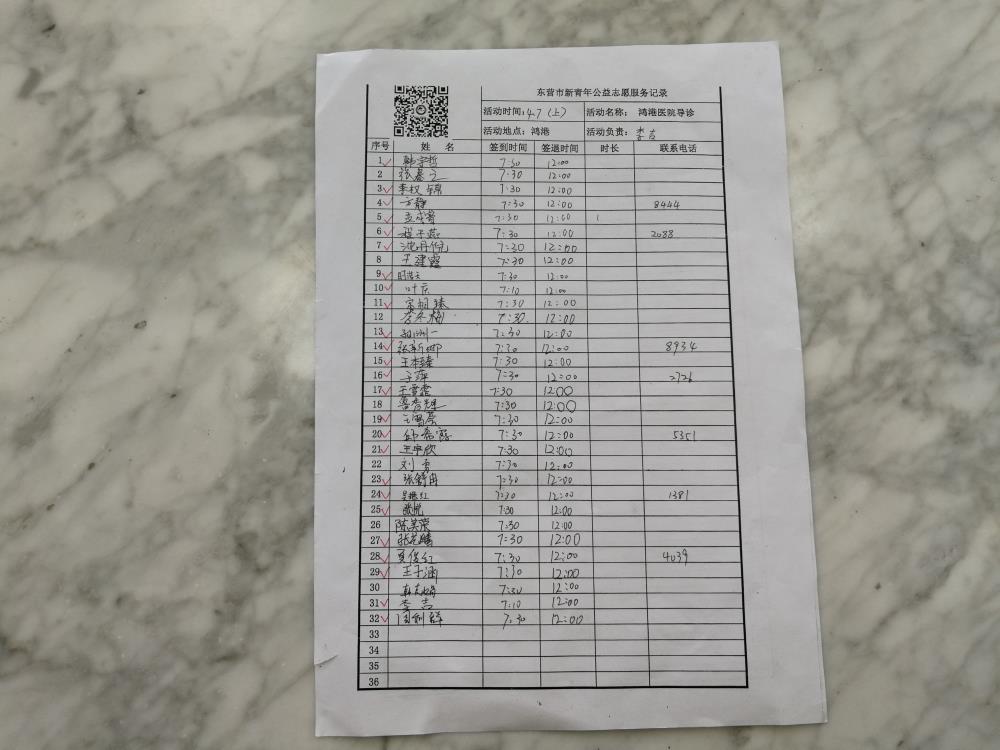 东营市新青年公益志愿服务记录
活动时间：4.7（上） 活动名称： 鸿港医院导诊
活动地点：鸿港 活动负责：李吉
序号 姓 名 签到时间 签退时间 时长 联系电话
1 韩宇哲 7:30 12:00
2 7:30 12:00
3 李权锦 7:30 12:00
4 方静 7:30 12:00 8444
5 7:30 12:00
6 程子燕 7:30 12:00 2088
7 沈丹倪 7:30 12:00
8 王建霞 7:30 12:00
9 7:30 12:00
10 叶庆 7:10 12:00
11 7:30 12:00
12 李冬梅 7:30 12:00
13 7:30 12:00
14 张新娜 7:30 12:00 8934
15 王本臻 7:30 12:00
16 于萍 7:30 12:00 2726
17 王雪霏 7:30 12:00
18 7:30 12:00
19 7:30 12:00
20 7:30 12:00 5351
21 王宇欣 7:30 12:00
22 刘 7:30 12:00
23 张舒冉 7:30 12:00
24 7:30 12:00 1381
25 7:30 12:00
26 陈美荣 7:30 12:00
27 7:30 12:00
28 夏俊红 7:30 12:00 4039
29 王子涵 7:30 12:00
30 7:30 12:00
31 李吉 7:10 12:00
32 周利群 7:30 12:00
33
34
35
36